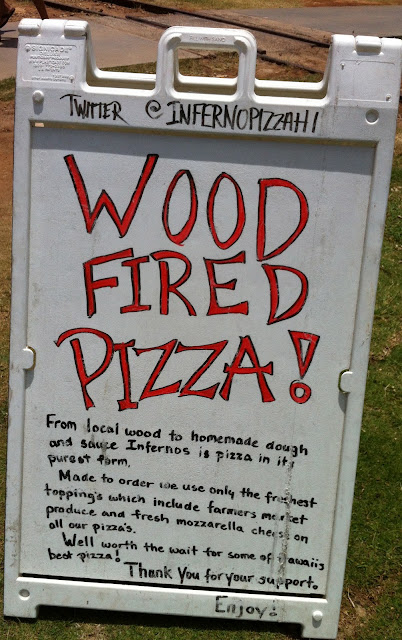 TWITTER @INFERNOPIZZAHI
WOOD
FIRED
PIZZA!
From local wood to homemade dough
and sauce Infernos is pizza in its
purest form.
Made to order we use only the freshest
topping's which include farmers market
produce and fresh mozzarella cheese on
all our pizza's.
Well worth the wait for some of Hawaiis
best pizza!
Thank You for your support.
Enjoy!